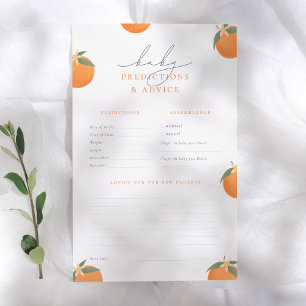 baby
PREDICTIONS
& ADVICE
PREDICTIONS
RESEMBLANCE
Date of birth:
Time of birth:
Weight:
Length:
Hair color:
Eye color:
MOMMY?
DADDY?
I hope the baby gets Mom's:
I hope the baby gets Dad's:
ADVICE FOR THE NEW PARENTS
With love,